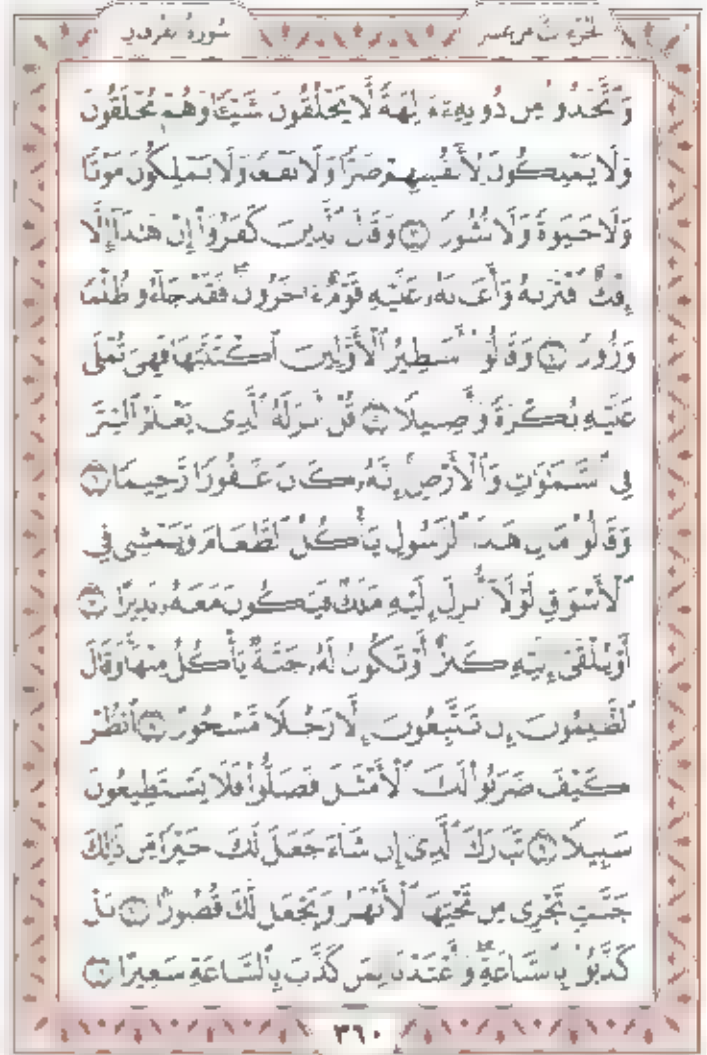 الجزء الثامن عشر سورة الفرقان
وَٱتَّخَذُوا۟ مِن دُونِهِۦٓ ءَالِهَةً لَّا يَخْلُقُونَ شَيْـًٔا وَهُمْ يُخْلَقُونَ
وَلَا يَمْلِكُونَ لِأَنفُسِهِمْ ضَرًّا وَلَا نَفْعًا وَلَا يَمْلِكُونَ مَوْتًا
وَلَا حَيَوٰةً وَلَا نُشُورًا ٣ وَقَالَ ٱلَّذِينَ كَفَرُوٓا۟ إِنْ هَـٰذَآ إِلَّآ
إِفْكٌ ٱفْتَرَىٰهُ وَأَعَانَهُۥ عَلَيْهِ قَوْمٌ ءَاخَرُونَ ۖ فَقَدْ جَآءُو ظُلْمًا
وَزُورًا ٤ وَقَالُوٓا۟ أَسَـٰطِيرُ ٱلْأَوَّلِينَ ٱكْتَتَبَهَا فَهِىَ تُمْلَىٰ
عَلَيْهِ بُكْرَةً وَأَصِيلًا ٥ قُلْ أَنزَلَهُ ٱلَّذِى يَعْلَمُ ٱلسِّرَّ
فِى ٱلسَّمَـٰوَٰتِ وَٱلْأَرْضِ ۚ إِنَّهُۥ كَانَ غَفُورًا رَّحِيمًا ٦
وَقَالُوا۟ مَالِ هَـٰذَا ٱلرَّسُولِ يَأْكُلُ ٱلطَّعَامَ وَيَمْشِى فِى
ٱلْأَسْوَاقِ ۙ لَوْلَآ أُنزِلَ إِلَيْهِ مَلَكٌ فَيَكُونَ مَعَهُۥ نَذِيرًا ٧
أَوْ يُلْقَىٰٓ إِلَيْهِ كَنزٌ أَوْ تَكُونُ لَهُۥ جَنَّةٌ يَأْكُلُ مِنْهَا ۚ وَقَالَ
ٱلظَّـٰلِمُونَ إِن تَتَّبِعُونَ إِلَّا رَجُلًا مَّسْحُورًا ٨ ٱنظُرْ
كَيْفَ ضَرَبُوا۟ لَكَ ٱلْأَمْثَـٰلَ فَضَلُّوا۟ فَلَا يَسْتَطِيعُونَ
سَبِيلًا ٩ تَبَارَكَ ٱلَّذِىٓ إِن شَآءَ جَعَلَ لَكَ خَيْرًا مِّن ذَٰلِكَ
جَنَّـٰتٍ تَجْرِى مِن تَحْتِهَا ٱلْأَنْهَـٰرُ وَيَجْعَل لَّكَ قُصُورًۢا ١٠ بَلْ
كَذَّبُوا۟ بِٱلسَّاعَةِ ۖ وَأَعْتَدْنَا لِمَن كَذَّبَ بِٱلسَّاعَةِ سَعِيرًا ١١
٣٦٠